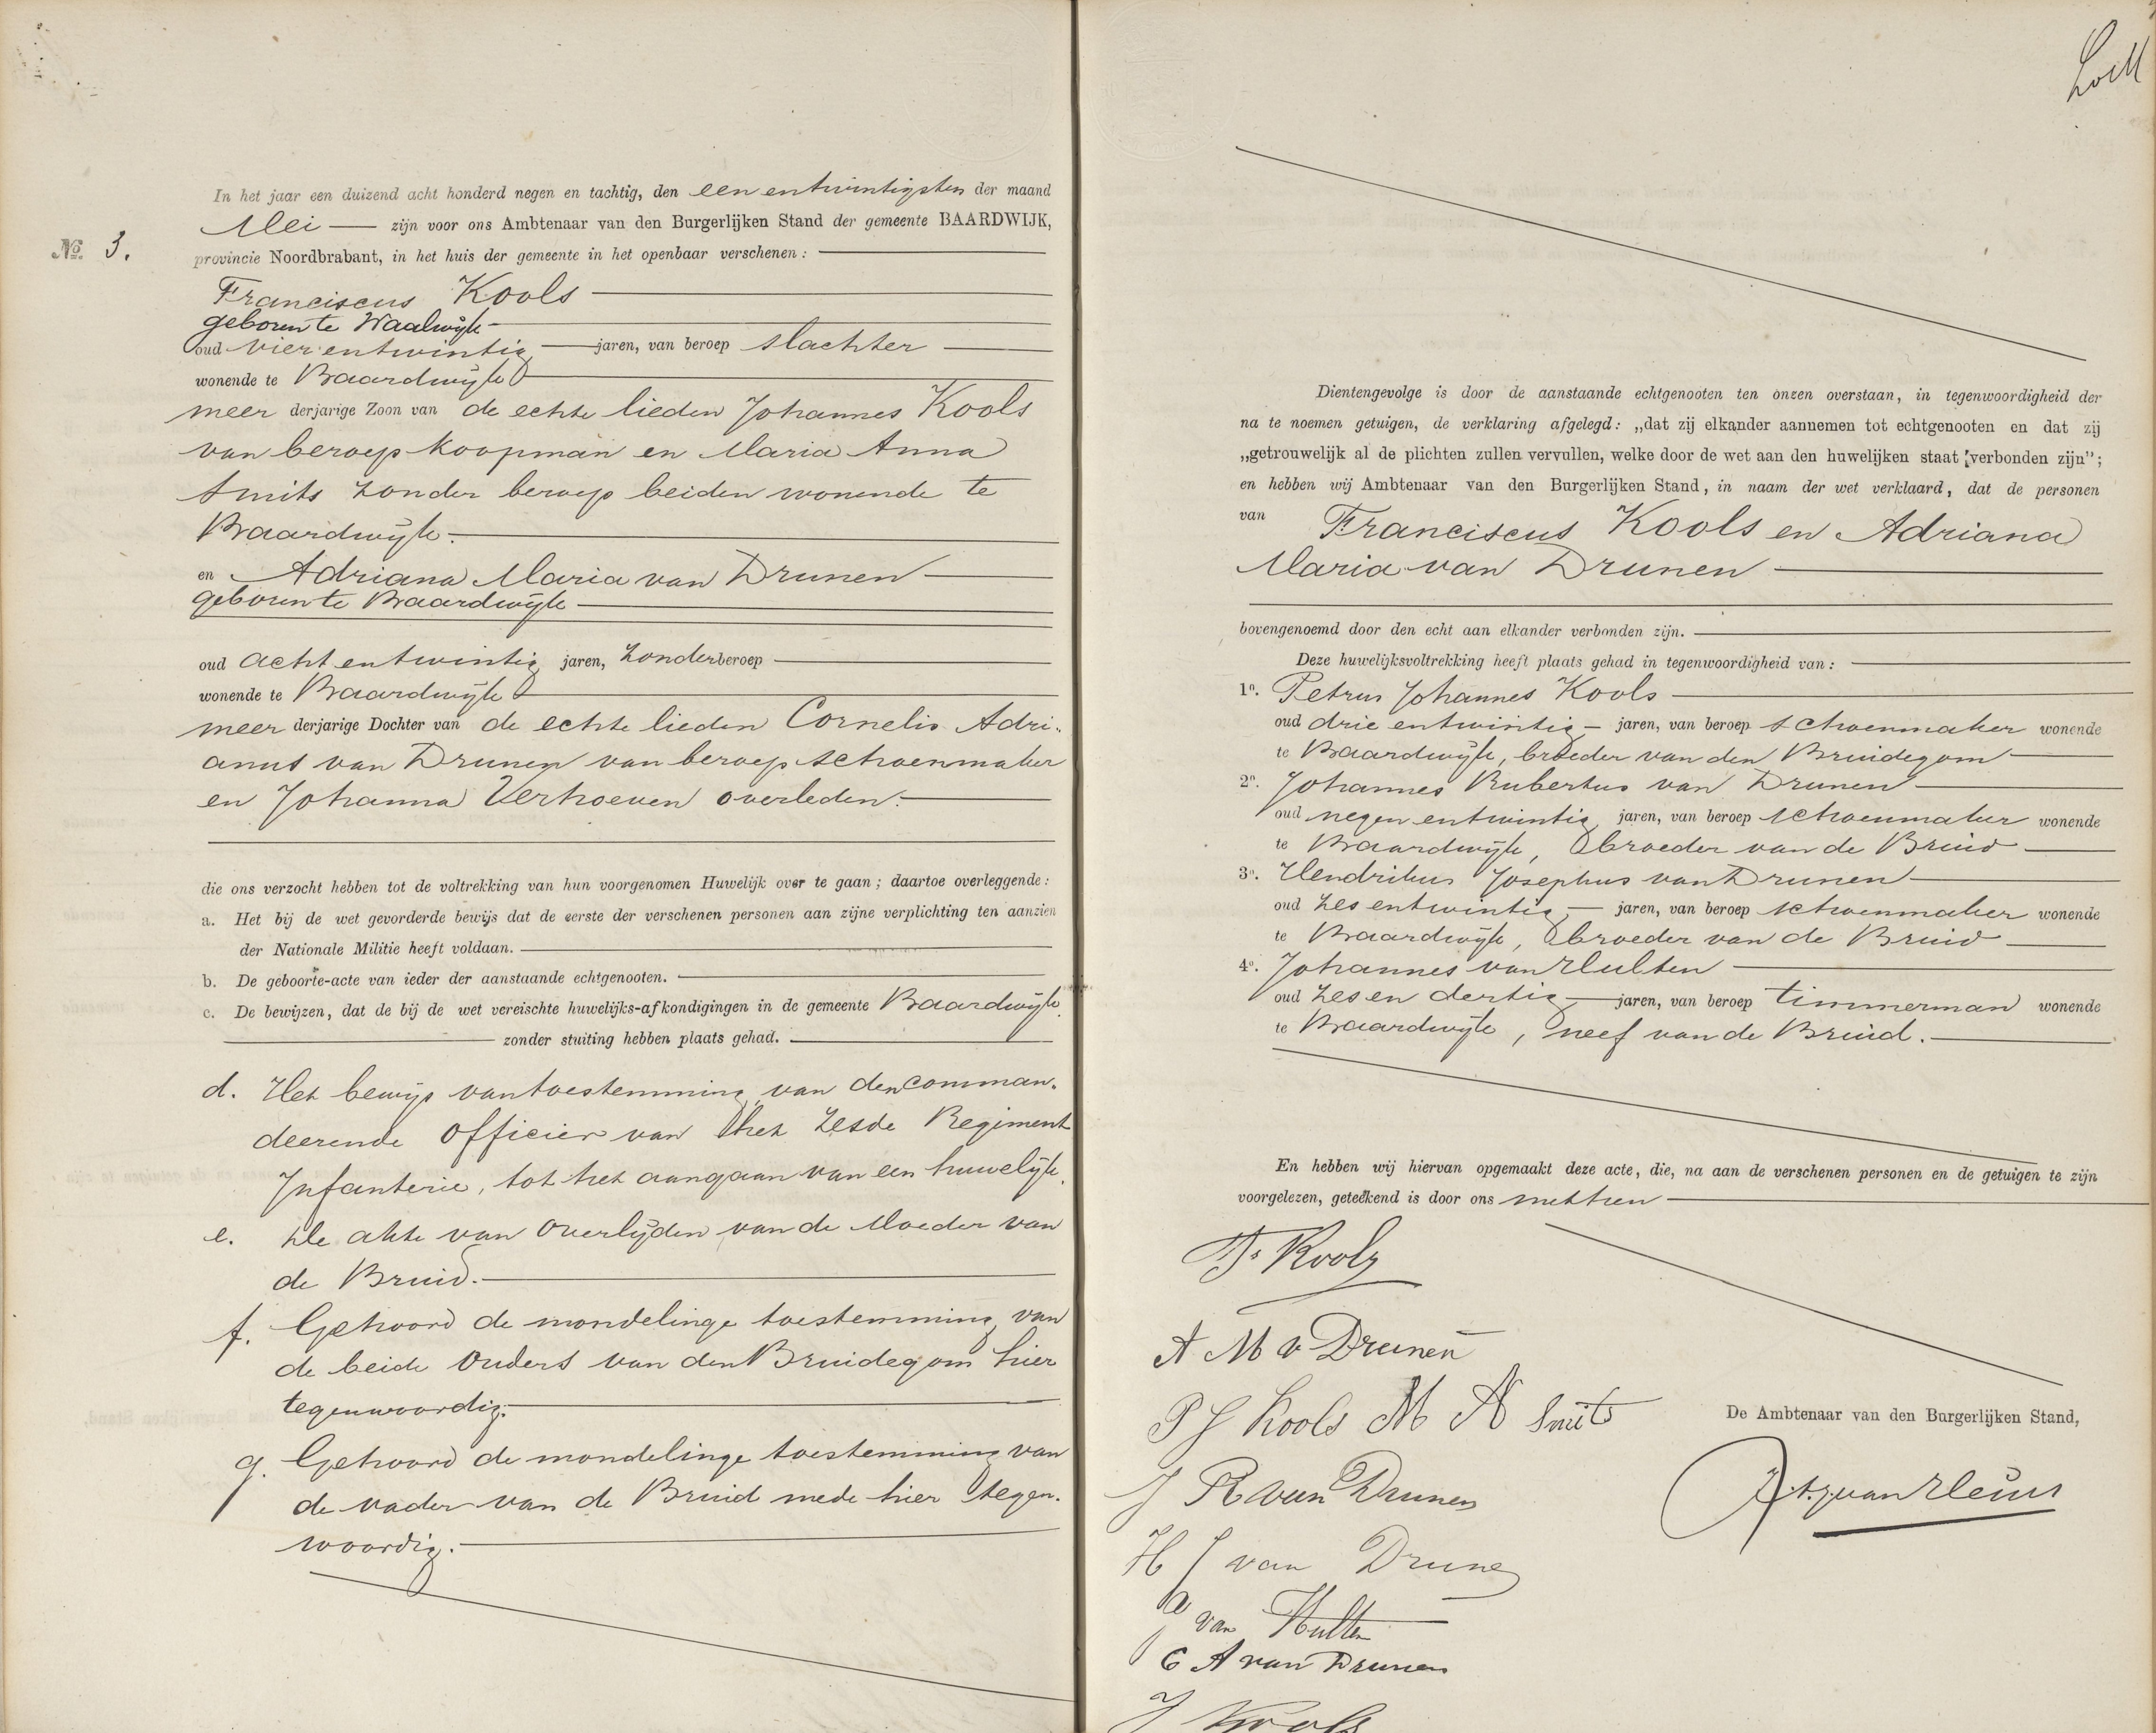 In het jaar een duizend acht honderd negen en tachtig, den een entwintigsten der maand
Mei — zijn voor ons Ambtenaar van den Burgerlijken Stand der gemeente BAARDWIJK,
No. 3.
provincie Noordbrabant, in het huis der gemeente in het openbaar verschenen:
Franciscus Kools
geboren te Waalwijk
oud vier entwintig jaren, van beroep slachter
wonende te Baardwijk
meer derjarige Zoon van de echte lieden Johannes Kools
van beroep koopman en Maria Anna
Smits zonder beroep beiden wonende te
Baardwijk.
en Adriana Maria van Drunen
geboren te Baardwijk
oud acht entwintig jaren, zonder beroep
wonende te Baardwijk
meer derjarige Dochter van de echte lieden Cornelis Adri-
anus van Drunen van beroep schoenmaker
en Johanna Verhoeven overleden.
die ons verzocht hebben tot de voltrekking van hun voorgenomen Huwelijk over te gaan; daartoe overleggende:
a. Het bij de wet gevorderde bewijs dat de eerste der verschenen personen aan zijne verplichting ten aanzien
der Nationale Militie heeft voldaan.
b. De geboorte-acte van ieder der aanstaande echtgenooten.
c. De bewijzen, dat de bij de wet vereischte huwelijks-afkondigingen in de gemeente Baardwijk
zonder stuiting hebben plaats gehad.
d. Het bewijs van toestemming van den comman-
deerende officier van het zesde Regiment
Infanterie, tot het aangaan van een huwelijk.
e. De akte van overlijden van de Moeder van
de Bruid.
f. Gehoord de mondelinge toestemming van
de beide ouders van den Bruidegom hier
tegenwoordig.
g. Gehoord de mondelinge toestemming van
de vader van de Bruid mede hier tegen-
woordig.
Dientengevolge is door de aanstaande echtgenooten ten onzen overstaan, in tegenwoordigheid der
na te noemen getuigen, de verklaring afgelegd: „dat zij elkander aannemen tot echtgenooten en dat zij
„getrouwelijk al de plichten zullen vervullen, welke door de wet aan den huwelijken staat verbonden zijn";
en hebben wij Ambtenaar van den Burgerlijken Stand, in naam der wet verklaard, dat de personen
van Franciscus Kools en Adriana
Maria van Drunen
bovengenoemd door den echt aan elkander verbonden zijn.
Deze huwelijksvoltrekking heeft plaats gehad in tegenwoordigheid van:
1o. Petrus Johannes Kools
oud drie entwintig jaren, van beroep schoenmaker wonende
te Baardwijk, broeder van den Bruidegom
2o. Johannes Rubertus van Drunen
oud negen entwintig jaren, van beroep schoenmaker wonende
te Baardwijk, broeder van de Bruid
3o. Hendrikus Josephus van Drunen
oud zes entwintig jaren, van beroep schoenmaker wonende
te Baardwijk, broeder van de Bruid
4o. Johannes van Hulten
oud zes en dertig jaren, van beroep timmerman wonende
te Baardwijk, neef van de Bruid.
En hebben wij hiervan opgemaakt deze acte, die, na aan de verschenen personen en de getuigen te zijn
voorgelezen, geteekend is door ons met hen
Fs Kools
A M v Drunen
P J Kools M A Smits
De Ambtenaar van den Burgerlijken Stand,
J R van Drunen
H J van Drunen
van Hulten
C A van Drunen
J Kools